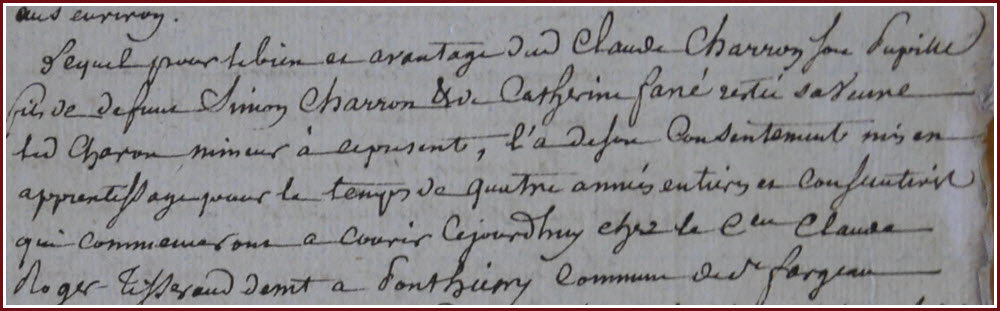 ans environ.
Lequel pour le bien et avantage dud Claude Charron son Pupille
fils de defunt Simon Charron & de Catherine fané restée sa Veuve
led Charon mineur à cepresent, l'a deson Consentement mis en
apprentissage pour le temps de quatre années entieres et consecutives
qui commenceront a courir cejourdhuy chez le Cen Claude
Roger Tisserand demt a Ponthierry commune de St fargeau